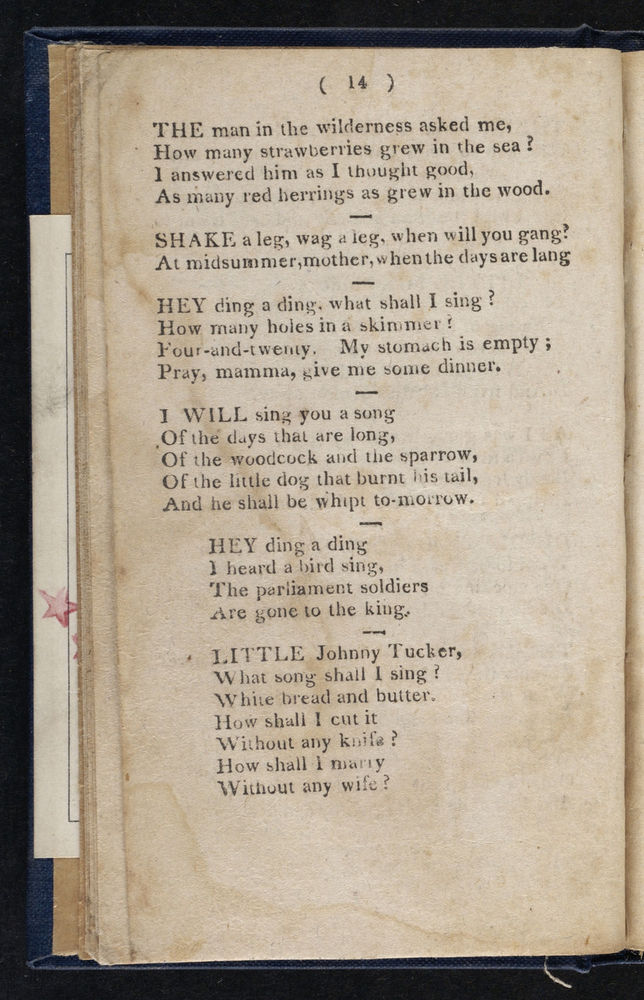 ( 14 )
THE man in the wilderness asked me,
How many strawberries grew in the sea ?
I answered him as I thought good,
As many red herrings as grew in the wood.
SHAKE a leg, wag a leg, when will you gang?
At midsummer, mother, when the days are lang
HEY ding a ding, what shall I sing ?
How many holes in a skimmer ?
Four-and-twenty. My stomach is empty ;
Pray, mamma, give me some dinner.
I WILL sing you a song
Of the days that are long,
Of the woodcock and the sparrow,
Of the little dog that burnt his tail,
And he shall be whipt to-morrow.
HEY ding a ding
I heard a bird sing,
The parliament soldiers
Are gone to the king.
LITTLE Johnny Tucker,
What song shall I sing ?
White bread and butter.
How shall I cut it
Without any knife ?
How shall I marry
Without any wife ?